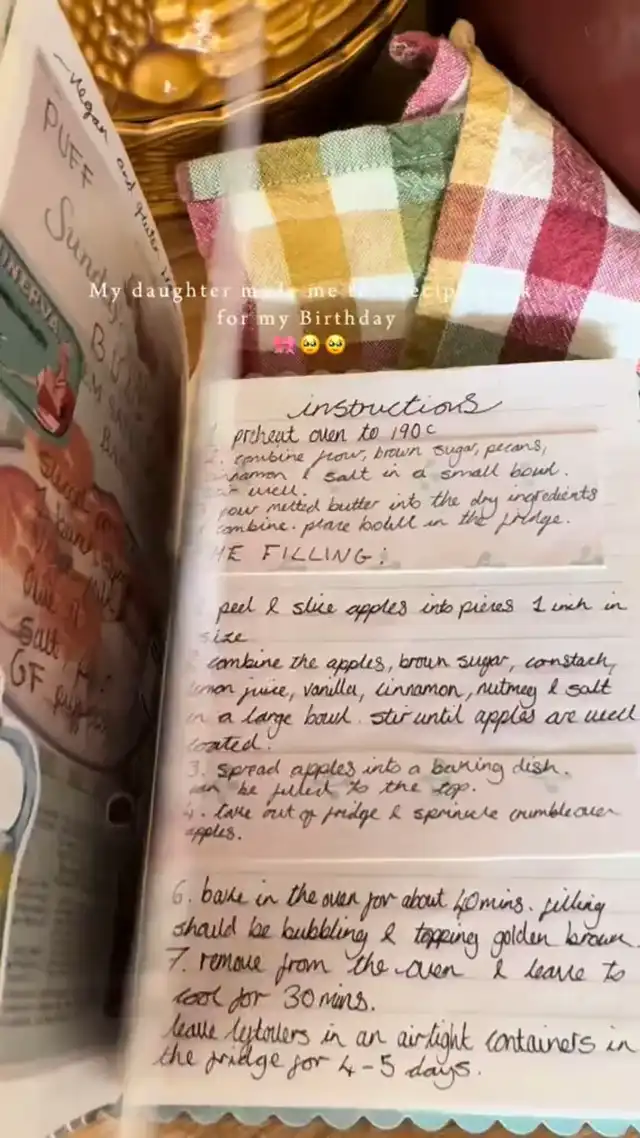 ~vegan and
PUFF
My daughter made me
for my Birthday
instructions
preheat oven to 190c
2. combine flour, brown sugar, pecans,
cinnamon & salt in a small bowl.
well.
pour melted butter into the dry ingredients
combine. place bowl in the fridge.
THE FILLING:
peel & slice apples into pieces 1 inch in
size
combine the apples, brown sugar, constach,
lemon juice, vanilla, cinnamon, nutmeg & salt
in a large bowl. stir until apples are well
coated.
3. spread apples into a baking dish.
can be filled to the top.
4. take out of fridge & sprinkle crumble over
apples.
6. bake in the oven for about 40mins. filling
should be bubbling & topping golden brown.
7. remove from the oven & leave to
cool for 30mins.
leave leftovers in an airtight containers in
the fridge for 4-5 days.
salt
GF